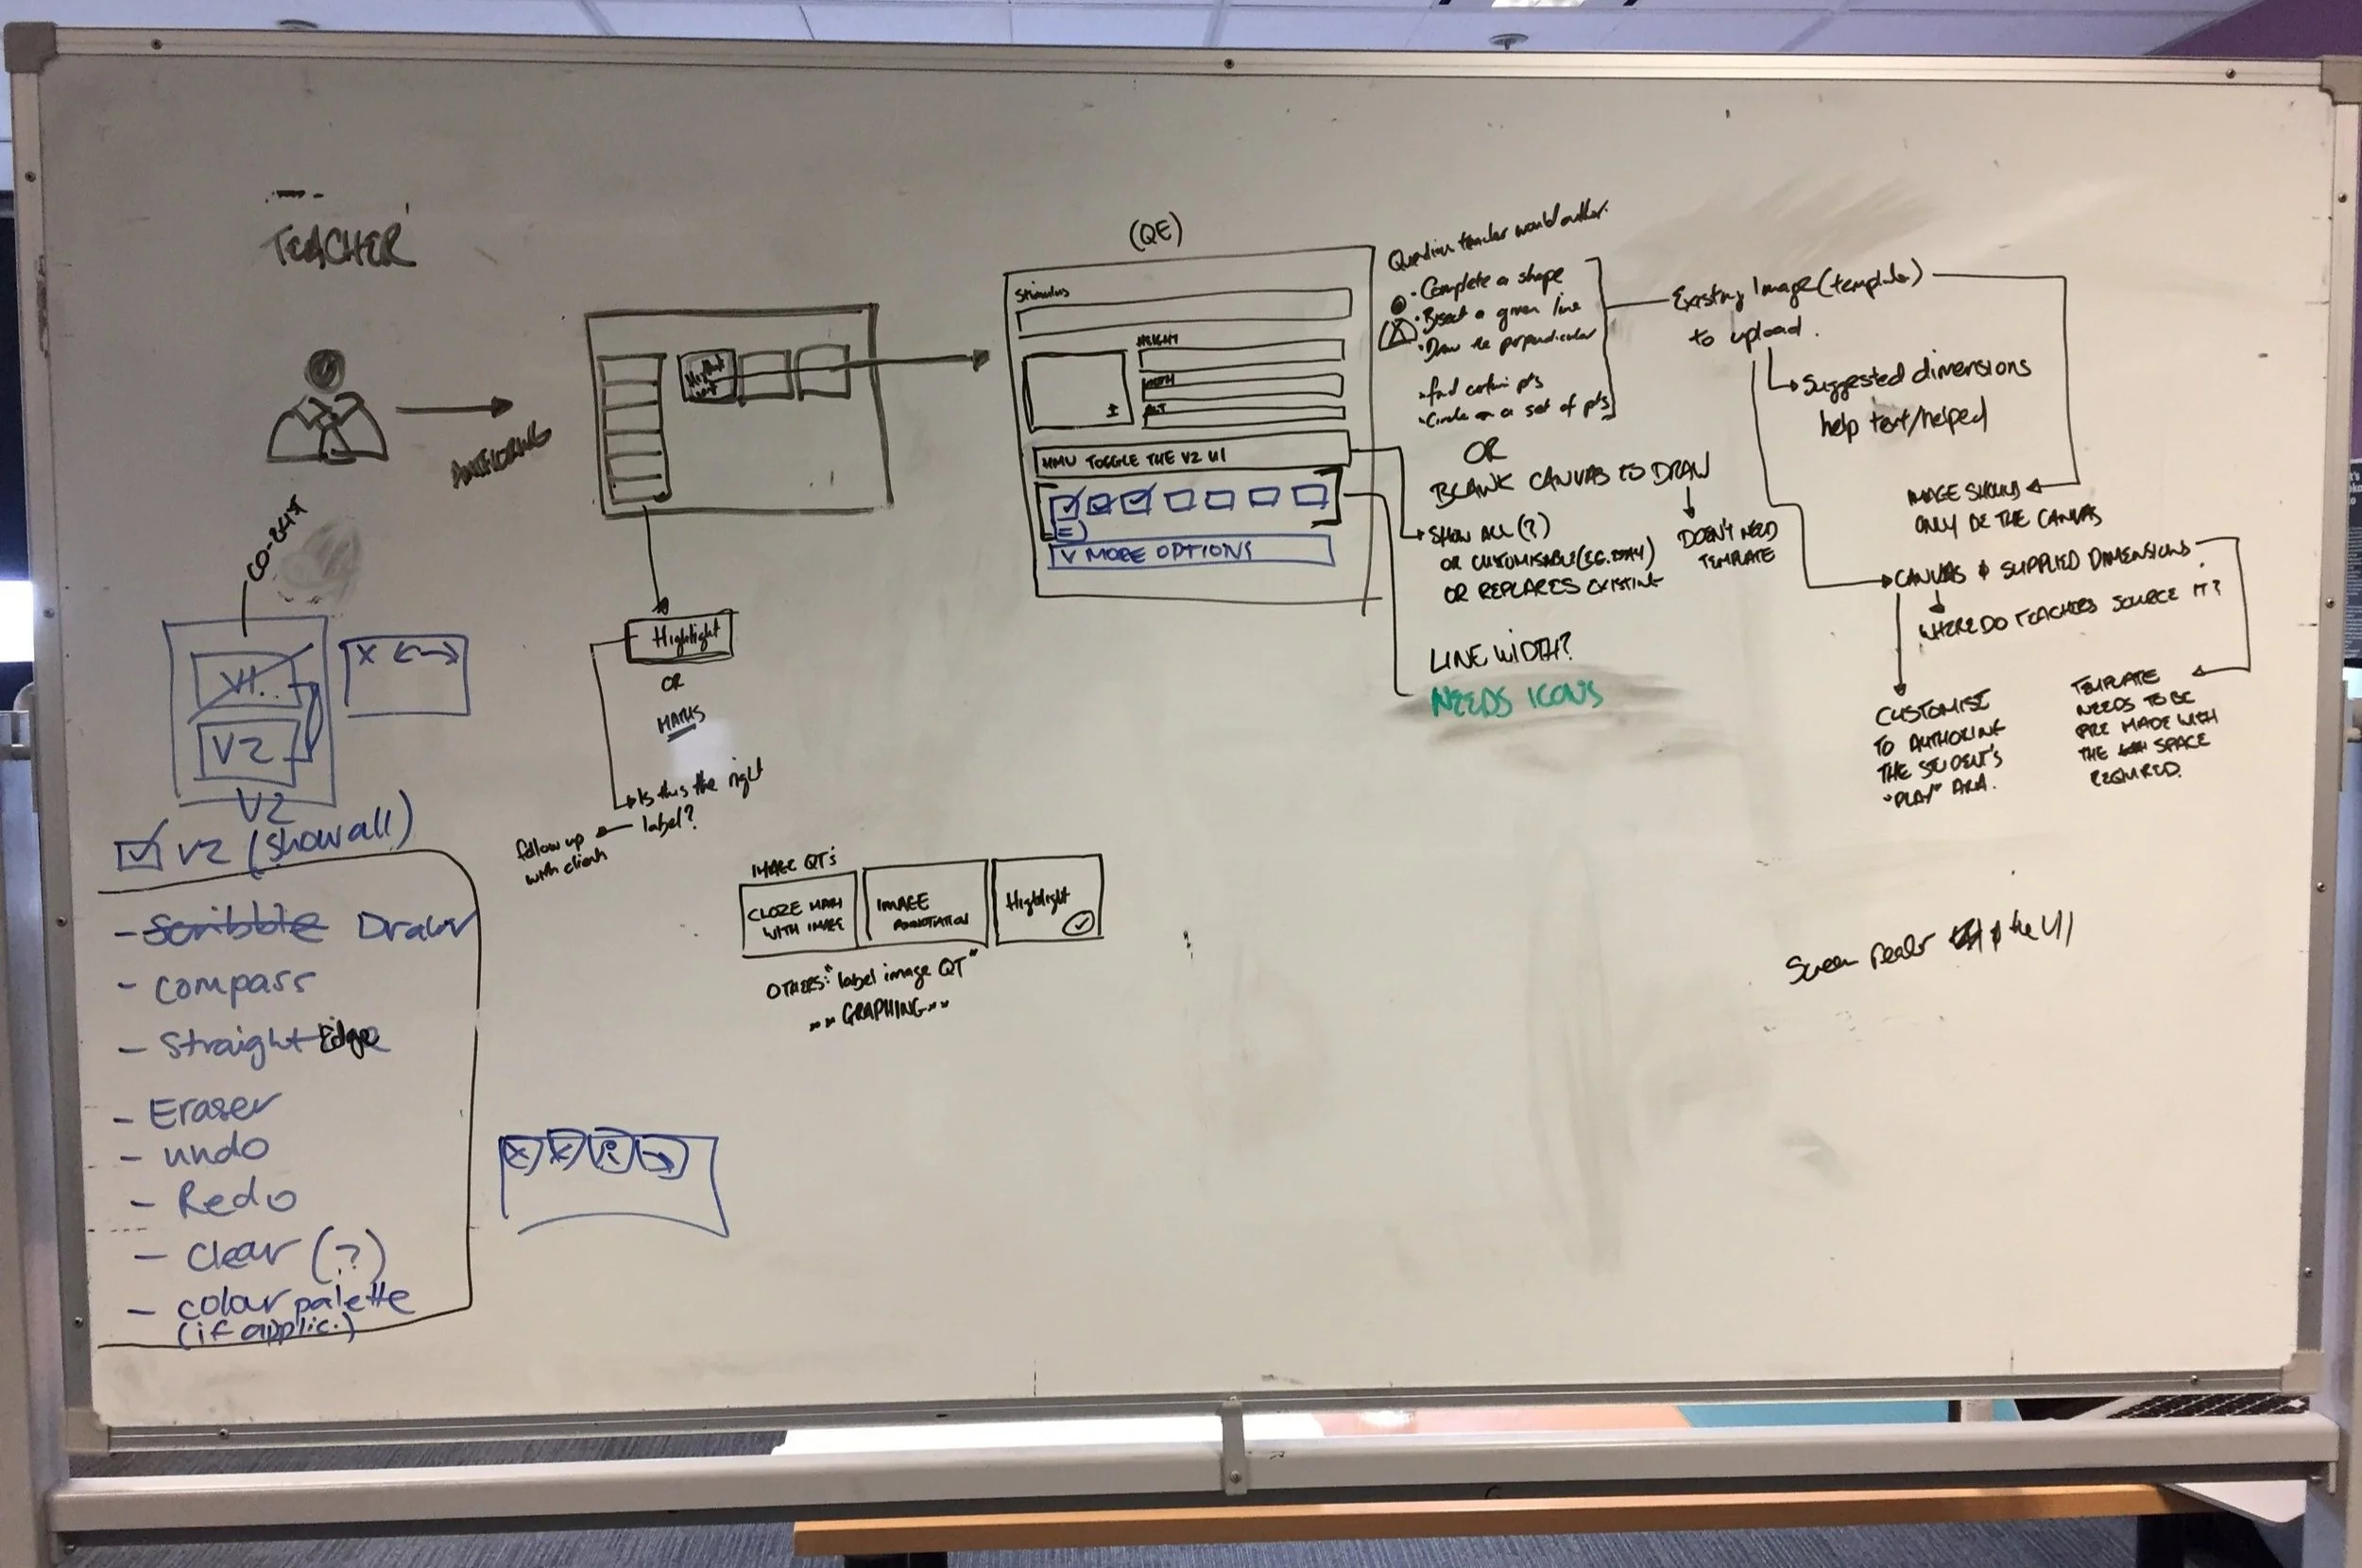 TEACHER
AUTHORING
CO-EXIT
V1.
V2
X
V2
V2 (show all)
- Scribble Draw
- Compass
- Straight Edge
- Eraser
- undo
- Redo
- Clear (?)
- colour palette
(if applic.)
Highlight
OR
MATHS
Is this the right
label?
follow up
with client
IMAGE QT's
CLOZE MATH
WITH IMAGE
IMAGE
ANNOTATION
Highlight
OTHERS: "label image QT"
GRAPHING
(QE)
Stimulus
HEIGHT
WIDTH
ALT
TOGGLE THE V2 UI
V MORE OPTIONS
Question teacher would author.
• Complete a shape
• Bisect a given line
• Draw the perpendicular
• find certain pts
• Circle on a set of pts
OR
BLANK CANVAS TO DRAW
DOEN'T NEED
TEMPLATE
SHOW ALL (?)
OR CUSTOMISABLE
OR REPLACES EXISTING
LINE WIDTH?
NEEDS ICONS
Existing Image (template)
to upload.
Suggested dimensions
help text/helped
IMAGE SHOULD
ONLY BE THE CANVAS
CANVAS & SUPPLIED DIMENSIONS
WHERE DO TEACHERS SOURCE IT?
CUSTOMISE
TO AUTHORING
THE STUDENT'S
"PLAY" AREA.
TEMPLATE
NEEDS TO BE
PRE MADE WITH
THE SPACE
REQUIRED.
Screen reader the UI